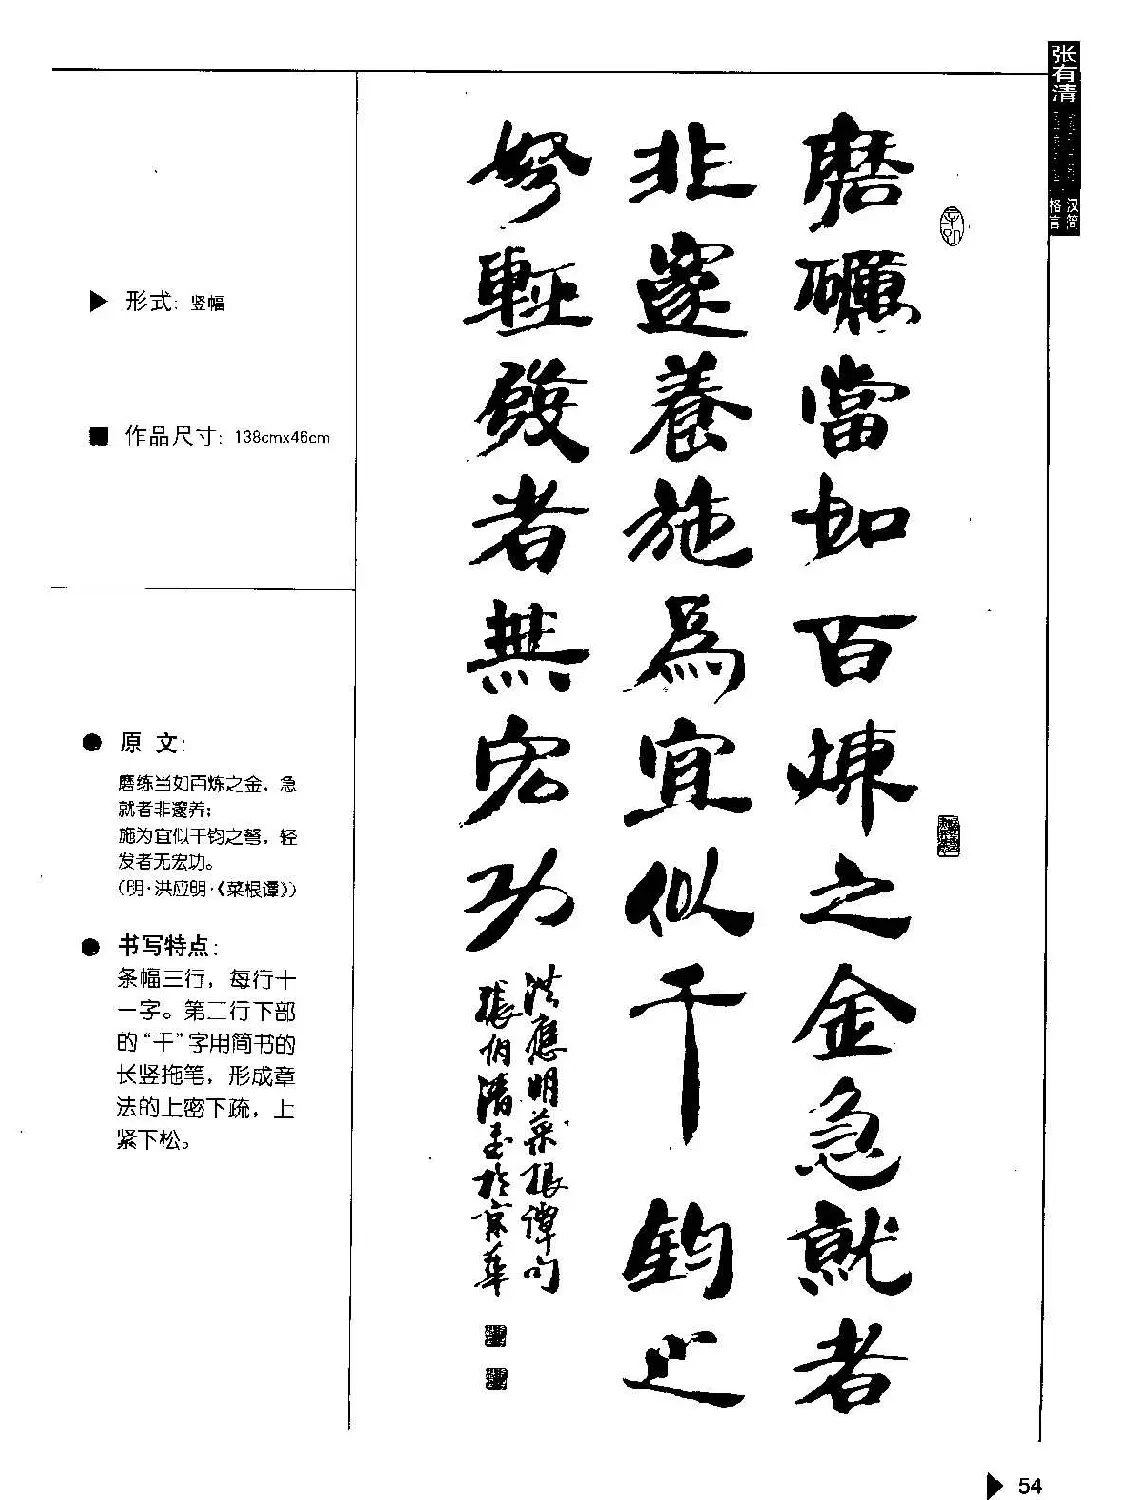 张有清
汉简
格言
磨礪當如百煉之金急就者
非邃養施為宜似千鈞之
弩輕發者無宏功
洪應明菜根譚句
張有清書於京華
形式：竖幅
作品尺寸：138cmx46cm
原 文：
磨练当如百炼之金，急
就者非邃养；
施为宜似千钧之弩，轻
发者无宏功。
(明·洪应明·《菜根谭》)
书写特点：
条幅三行，每行十
一字。第二行下部
的“千”字用简书的
长竖拖笔，形成章
法的上密下疏，上
紧下松。
54